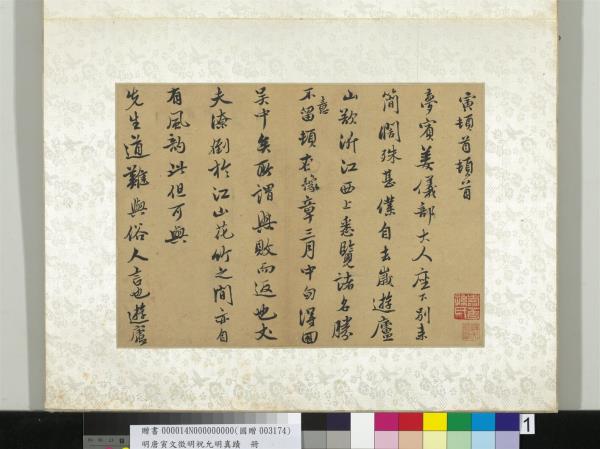 寅頓首頓首
夢賓姜儀部大人座下別來
簡闊殊甚僕自去歲遊廬
山歎浙江西上悉覽諸名勝
不喜留頓
章三月中旬得回
吳中矣所謂興敗而返也丈
夫潦倒於江山花竹之間亦自
有風韵此但可與
先生道難與俗人言也遊廬
贈書 000014N000000000(國贈 003174)
明唐寅文徵明祝允明真蹟 冊
1